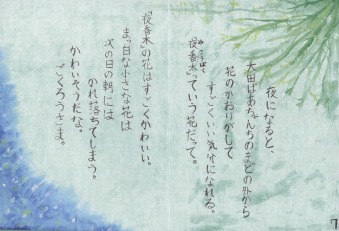 夜になると、
大田ばあちゃんちのまどの外から
花のかおりがして
すごくいい気分になれる。
「夜香木」っていう花だって。
「夜香木」の花はすごくかわいい。
まっ白な小さな花は
次の日の朝には
かれ落ちてしまう。
かわいそうだな、
ごくろうさま。
7